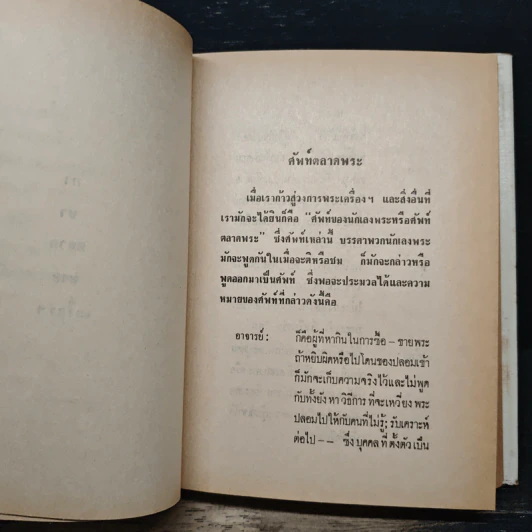 ศัพท์ตลาดพระ
เมื่อเราก้าวสู่วงการพระเครื่องฯ และสิ่งอื่นที่
เรามักจะได้ยินก็คือ "ศัพท์ของนักเลงพระหรือศัพท์
ตลาดพระ" ซึ่งศัพท์เหล่านี้ บรรดาพวกนักเลงพระ
มักจะพูดกันในเมื่อจะติหรือชม ก็มักจะกล่าวหรือ
พูดออกมาเป็นศัพท์ ซึ่งพอจะประมวลได้และความ
หมายของศัพท์ที่กล่าวดังนี้คือ
อาจารย์ : ก็คือผู้ที่หากินในการซื้อ – ขายพระ
ถ้าหยิบผิดหรือไปโดนของปลอมเข้า
ก็มักจะเก็บความจริงไว้และไม่พูด
กับทั้งยัง หา วิธีการ ที่จะเหวี่ยง พระ
ปลอมไปให้กับคนที่ไม่รู้; รับเคราะห์
ต่อไป – – ซึ่ง บุคคล ที่ ตั้งตัว เป็น